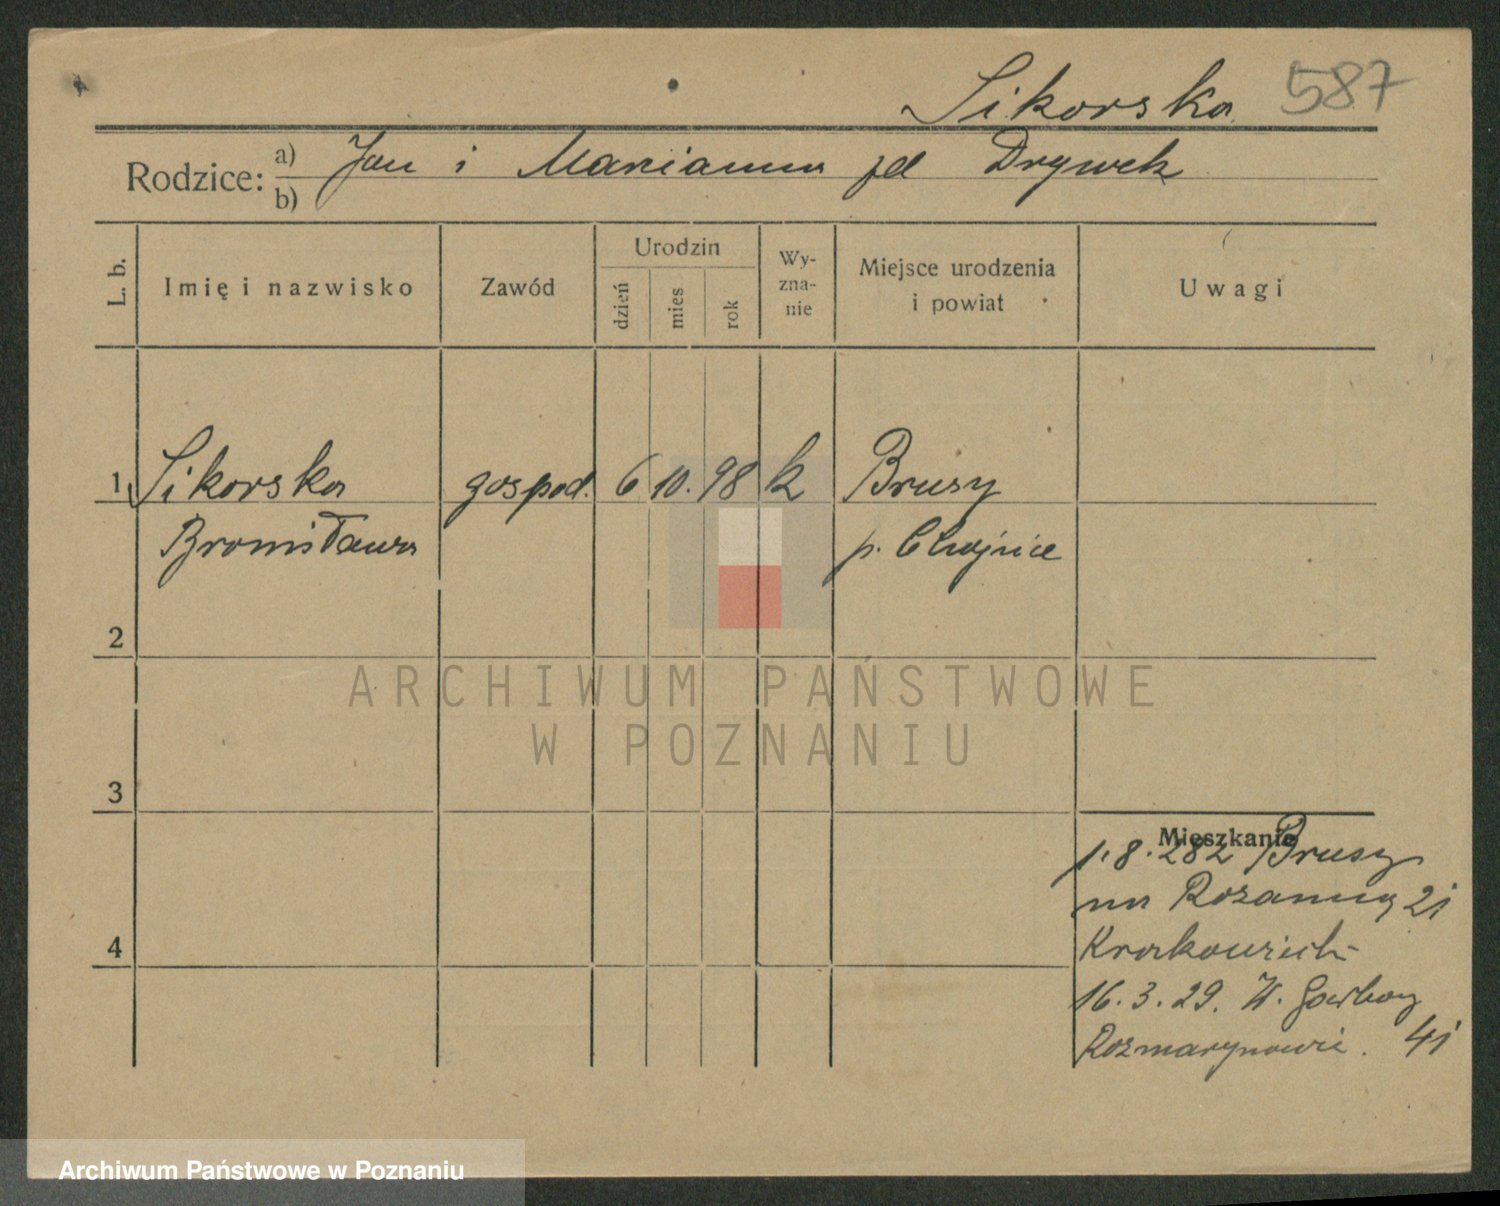 Sikorska 587
Rodzice: a) Jan i Marianna zd Drywek
b)
L. b. Imię i nazwisko Zawód Urodzin dzień mies rok Wyznanie Miejsce urodzenia i powiat Uwagi
1 Sikorska gospod. 6 10. 98 k Brusy
Bronisława p. Chojnice
2
3
4
Mieszkanie
1.8. Brusy
na 21
16.3.29. W. Garbary 41
ARCHIWUM PAŃSTWOWE
W POZNANIU
Archiwum Państwowe w Poznaniu